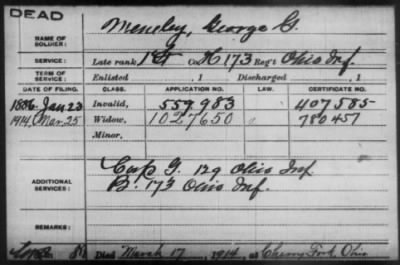 DEAD
NAME OF SOLDIER: Meneley, George G.
SERVICE: Late rank, Co. K 173 Reg't Ohio Inf.
TERM OF SERVICE: Enlisted , 1 Discharged , 1
DATE OF FILING. CLASS. APPLICATION NO. LAW. CERTIFICATE NO.
1886. Jan 23 Invalid, 559.983 407.585
1914, Mar. 25 Widow, 1027650 780457
Minor,
ADDITIONAL SERVICES: Corp G. 129 Ohio Inf
B. 173 Ohio Inf.
REMARKS:
Died March 17, 1914, at Cherry Fork, Ohio